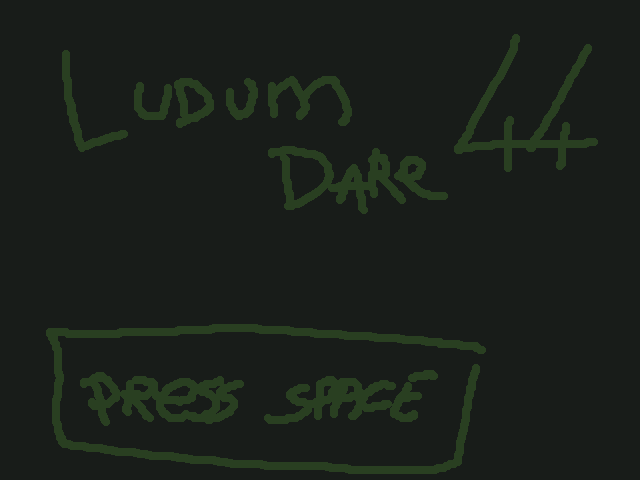 LUDUM 44
DARE
PRESS SPACE